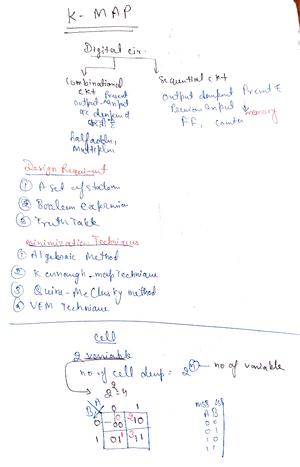 K - MAP
Digital cir.
Combinational
ckt Present
output input
पर depend
करती है
half adder,
Multiplex
Sequential ckt
output depend Present &
Previous input & memory
FF, counter
Design Requirment
① A set of statem
② Boolean Expression
③ Truth Table
minimization Techniques
① Algebraic Method
② Karnaugh-map Technique
③ Quine-McClusky method
④ VEM Technique
Cell
2 variable
no of cell denp = 2ⁿ → no of variable
2² = 4
A
B 0 1
0 00 10
1 01 11
MSB LSB
A B
0 0
0 1
1 0
1 1